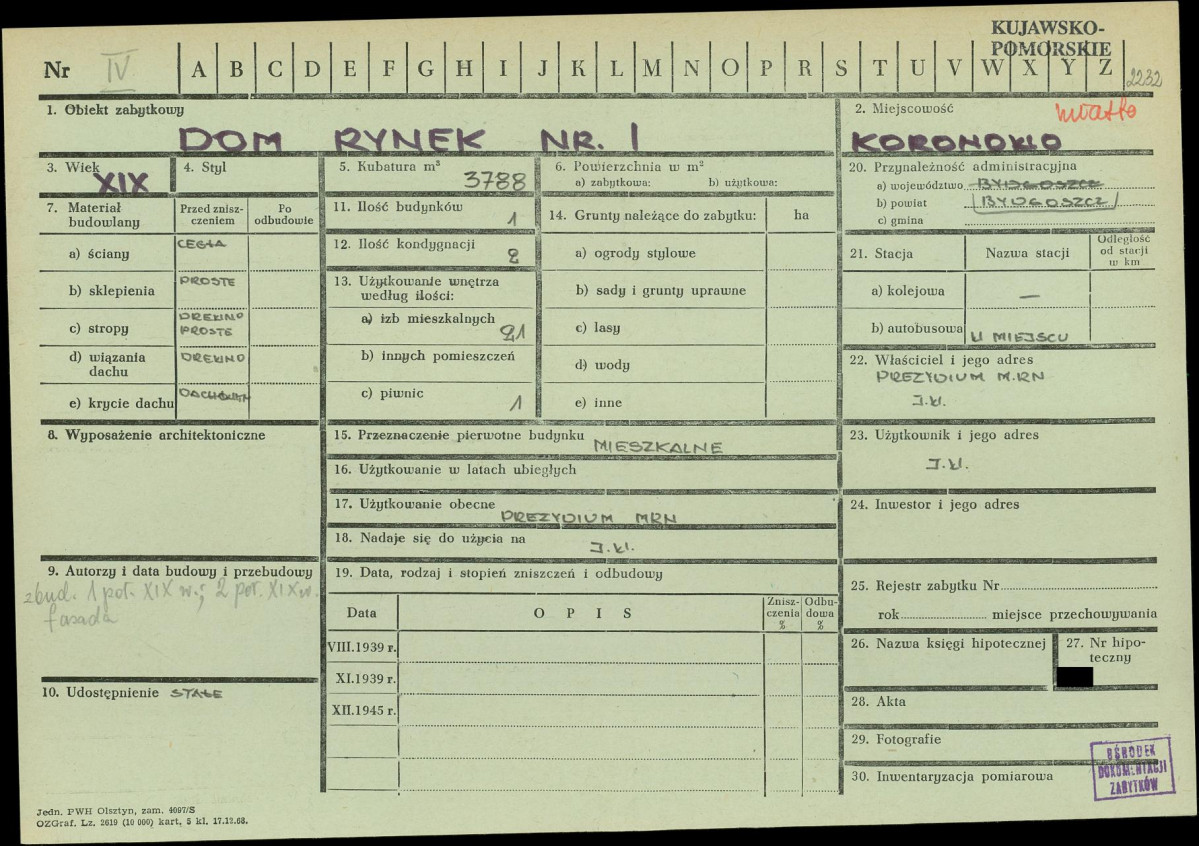 KUJAWSKO-
POMORSKIE
Nr IV A B C D E F G H I J K L M N O P R S T U V W X Y Z 2232
1. Obiekt zabytkowy
DOM RYNEK NR. 1
2. Miejscowość
miasto
KORONOWO
3. Wiek
XIX
4. Styl
5. Kubatura m³
3788
6. Powierzchnia w m²
a) zabytkowa: b) użytkowa:
20. Przynależność administracyjna
a) województwo BYDGOSZCZ
b) powiat BYDGOSZCZ
c) gmina
7. Materiał budowlany
Przed znisz-
czeniem
Po
odbudowie
a) ściany CEGŁA
b) sklepienia PROSTE
c) stropy DREWNO
PROSTE
d) wiązania
dachu DREWNO
e) krycie dachu
11. Ilość budynków 1
12. Ilość kondygnacji 2
13. Użytkowanie wnętrza
według ilości:
a) izb mieszkalnych 21
b) innych pomieszczeń
c) piwnic 1
14. Grunty należące do zabytku: ha
a) ogrody stylowe
b) sady i grunty uprawne
c) lasy
d) wody
e) inne
21. Stacja Nazwa stacji
Odległość
od stacji
w km
a) kolejowa —
b) autobusowa W MIEJSCU
22. Właściciel i jego adres
PREZYDIUM M.RN
J.W.
8. Wyposażenie architektoniczne
15. Przeznaczenie pierwotne budynku MIESZKALNE
16. Użytkowanie w latach ubiegłych
17. Użytkowanie obecne
PREZYDIUM MRN
18. Nadaje się do użycia na J.W.
23. Użytkownik i jego adres
J.W.
24. Inwestor i jego adres
9. Autorzy i data budowy i przebudowy
zbud. 1 poł. XIX w.; 2 poł. XIX w.
fasada
10. Udostępnienie STAŁE
19. Data, rodzaj i stopień zniszczeń i odbudowy
Data O P I S
Znisz-
czenia
%
Odbu-
dowa
%
VIII.1939 r.
XI.1939 r.
XII.1945 r.
25. Rejestr zabytku Nr
rok miejsce przechowywania
26. Nazwa księgi hipotecznej
27. Nr hipo-
teczny
28. Akta
29. Fotografie
30. Inwentaryzacja pomiarowa
OŚRODEK
DOKUMENTACJI
ZABYTKÓW
Jedn. PWH Olsztyn, zam. 4097/S
OZGraf. Lz. 2619 (10 000) kart. 5 kl. 17.12.68.